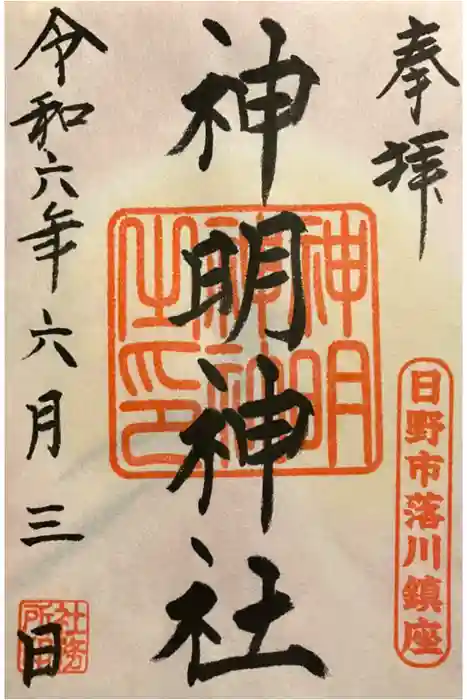 奉拝
日野市落川鎮座
神明神社
神明神社之印
令和六年六月三日
社務所印